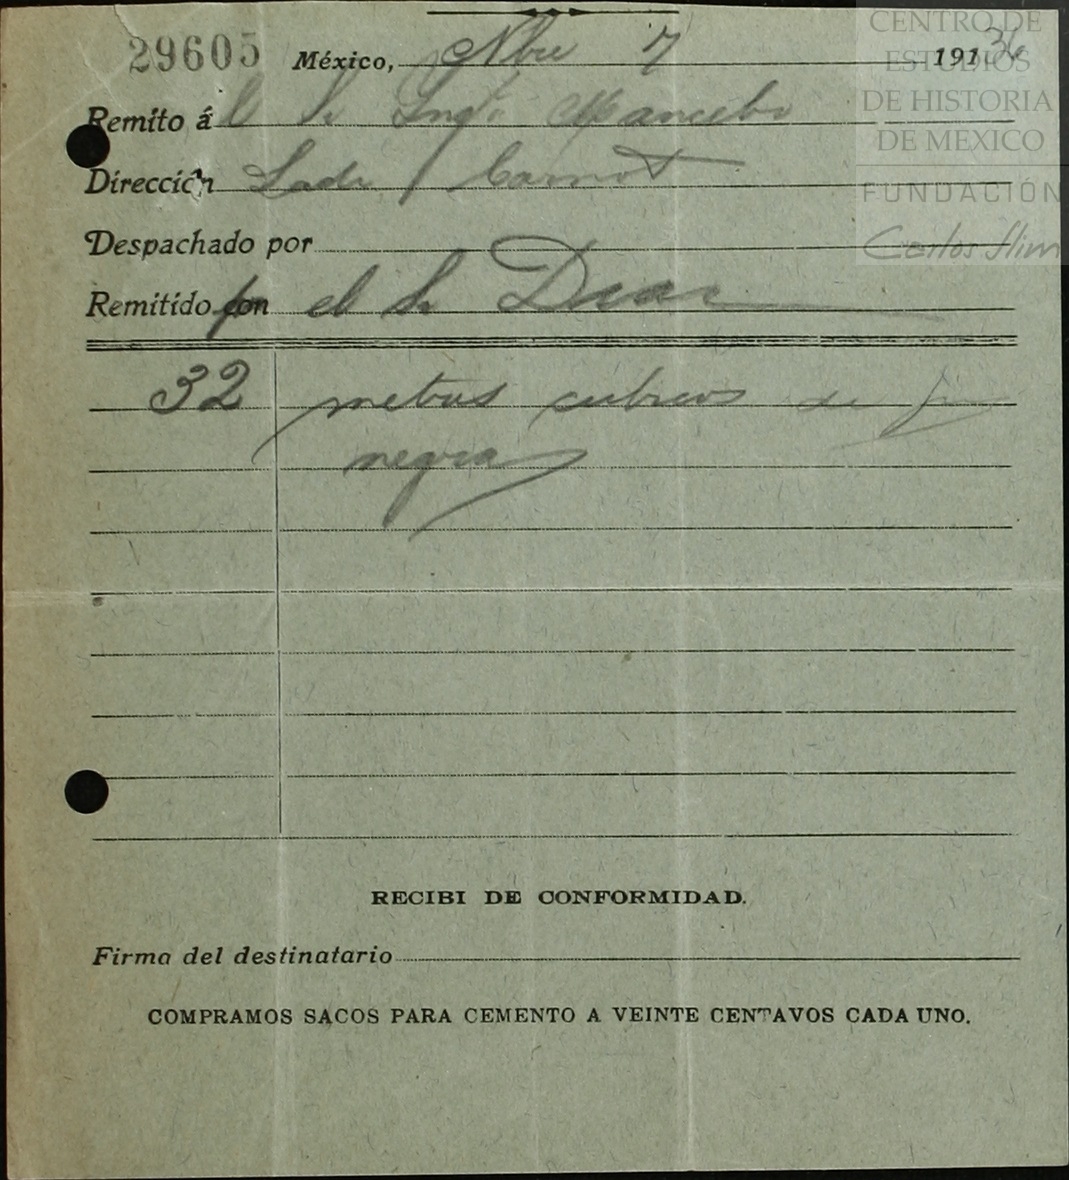 CENTRO DE
ESTUDIOS
DE HISTORIA
DE MEXICO
FUNDACIÓN
Carlos Slim
29605 México, Nbre 7 191
Remito á l Sr Ingº Mancebo
Dirección Lada / Carnot
Despachado por
Remitido con por el Sr Diaz
32 metros cubicos de
negra
RECIBI DE CONFORMIDAD.
Firma del destinatario
COMPRAMOS SACOS PARA CEMENTO A VEINTE CENTAVOS CADA UNO.